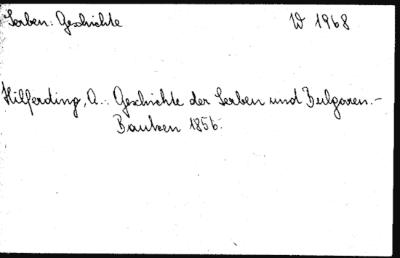 Serben: Geschichte W 1968
Hilferding, A.: Geschichte der Serben und Bulgaren.-
Bautzen 1856.